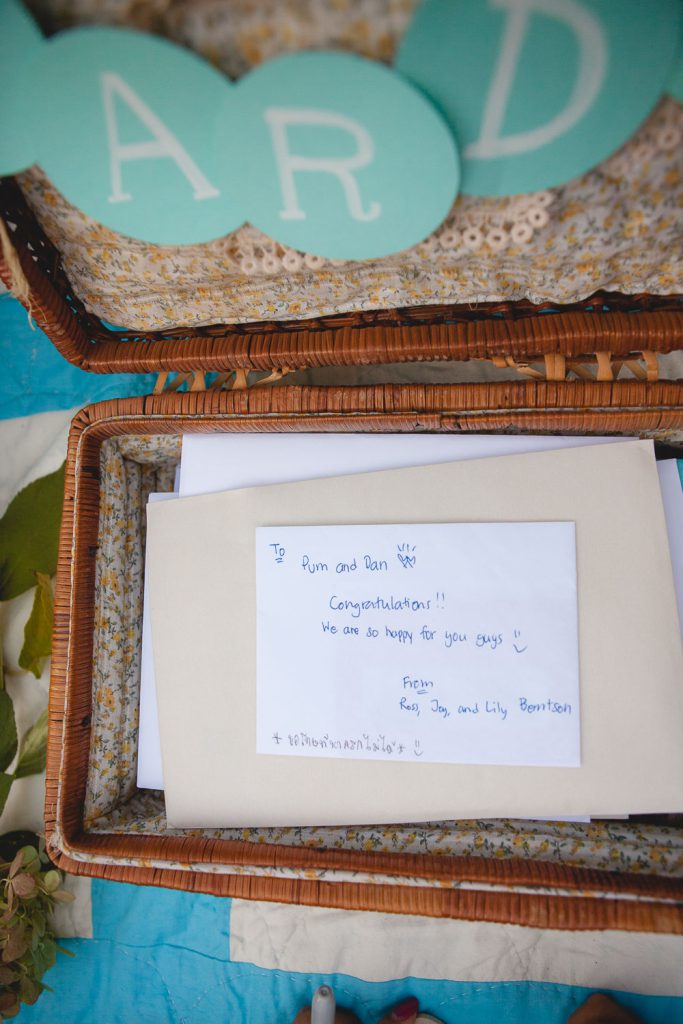 ARD
To
Pum and Dan
Congratulations!!
We are so happy for you guys :)
From
Ross, Joy, and Lily Berntson
* ขอโทษที่หาครกไม่ได้ * :)